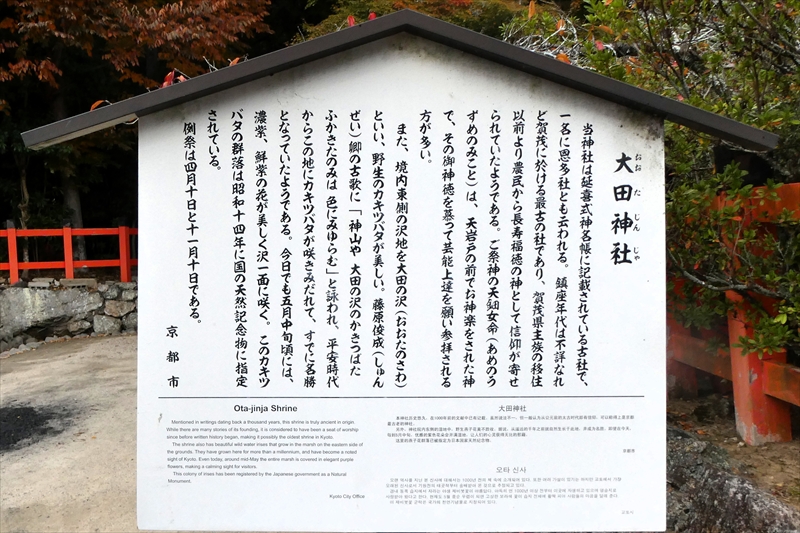 大田神社
おおたじんじゃ
当神社は延喜式神名帳に記載されている古社で、
一名に恩多社とも云われる。鎮座年代は不詳なれ
ど賀茂に於ける最古の社であり、賀茂県主族の移住
以前より農民から長寿福徳の神として信仰が寄せ
られていたようである。ご祭神の天鈿女命（あめのう
ずめのみこと）は、天岩戸の前でお神楽をされた神
で、その御神徳を慕って芸能上達を願い参拝される
方が多い。
また、境内東側の沢地を大田の沢（おおたのさわ）
といい、野生のカキツバタが美しい。藤原俊成（しゅん
ぜい）卿の古歌に「神山や　大田の沢のかきつばた
ふかきたのみは　色にみゆらむ」と詠われ、平安時代
からこの地にカキツバタが咲きみだれて、すでに名勝
となっていたようである。今日でも五月中旬頃には、
濃紫、鮮紫の花が美しく沢一面に咲く。このカキツ
バタの群落は昭和十四年に国の天然記念物に指定
されている。
例祭は四月十日と十一月十日である。
京都市
Ota-jinja Shrine
Mentioned in writings dating back a thousand years, this shrine is truly ancient in origin.
While there are many stories of its founding, it is considered to have been a seat of worship
since before written history began, making it possibly the oldest shrine in Kyoto.
The shrine also has beautiful wild water irises that grow in the marsh on the eastern side of
the grounds. They have grown here for more than a millennium, and have become a noted
sight of Kyoto. Even today, around mid-May the entire marsh is covered in elegant purple
flowers, making a calming sight for visitors.
This colony of irises has been registered by the Japanese government as a Natural
Monument.
Kyoto City Office
大田神社
京都市
오타 신사
교토시